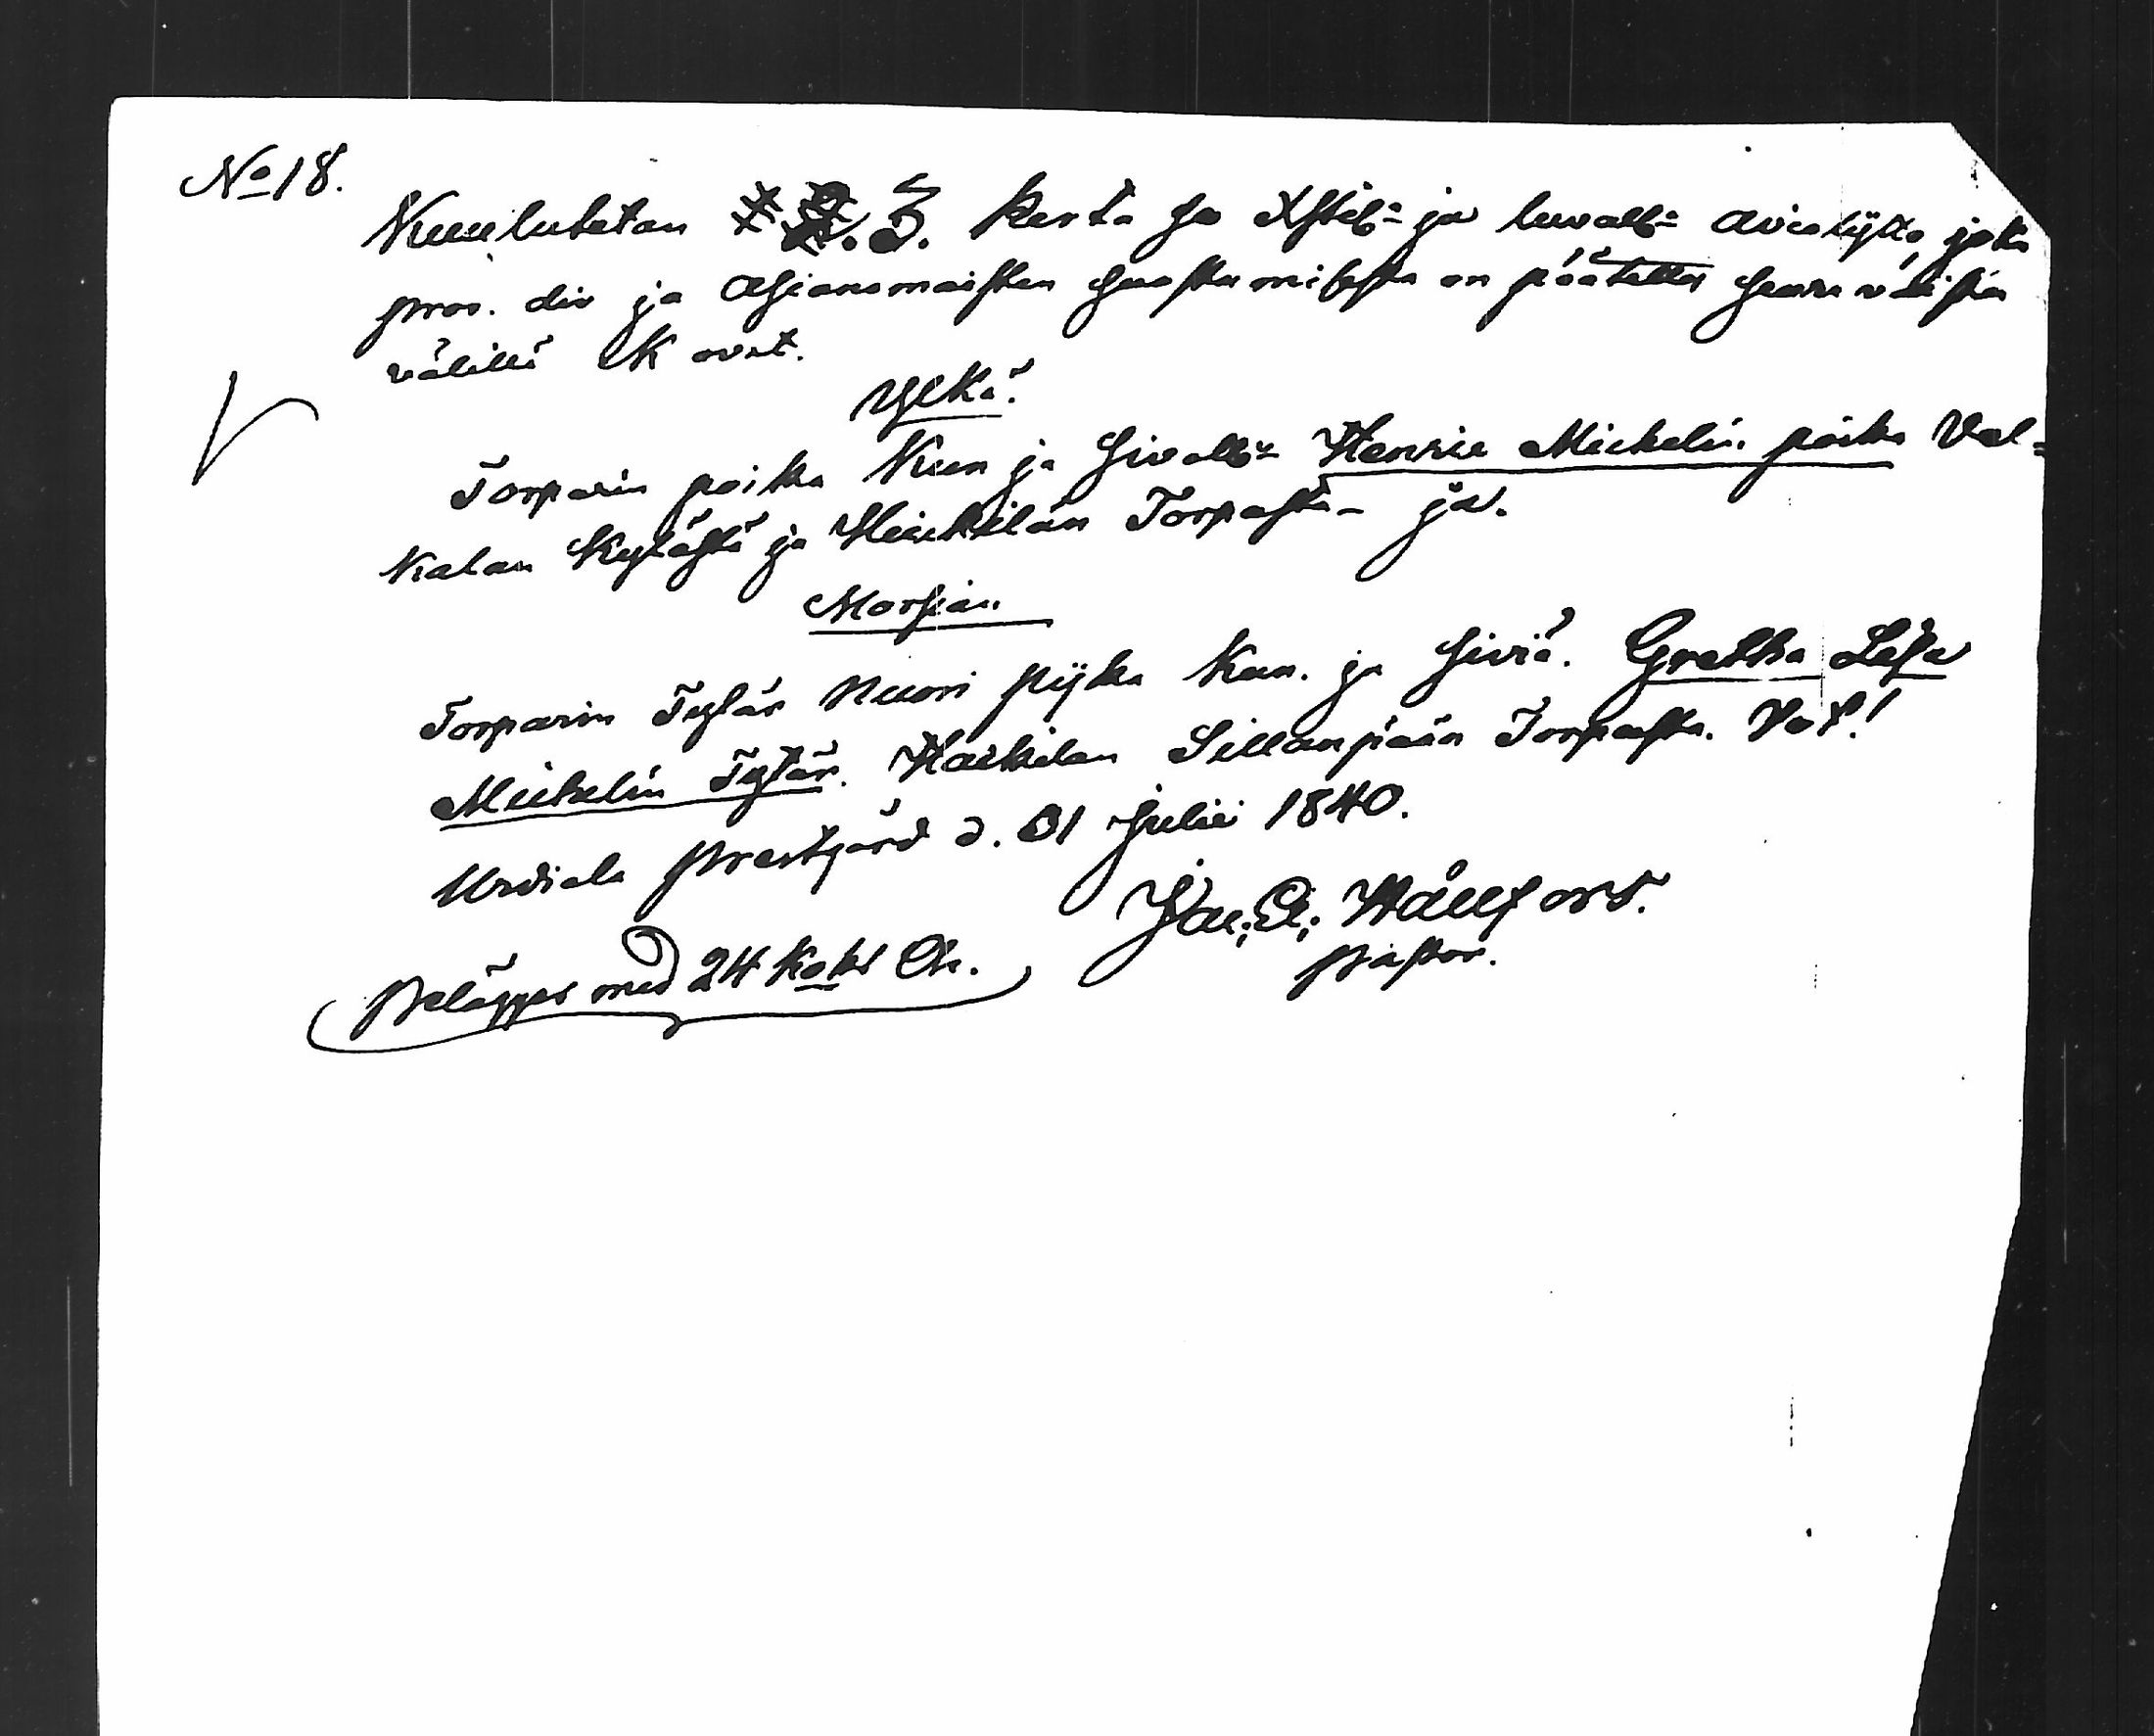 No 18.
Kuulutetan 3. kerta se Xstil= ja luvall= aviokäsky, joka
prov. div ja Asianomaisten suostumisesta on päätetty seuravaisten
välillä K ovat.
Ylkä.
Torparin poika Kun ja Sivall= Henric Mickelin poika Val=
kalan Kylästä ja Heickilän Torpasta - ja.
Morsian
Torparin Tytär nuori pijka Kun. ja Siviä. Gretha Lisa
Mickelin Tytär. Kaskilan Sillanpään Torpasta. Vat!
Urdiala Prestgård d. 31 Julii 1840.
Jac; Ed; Wållfors.
Pastor.
Belägges med 24 Kopk Ch.